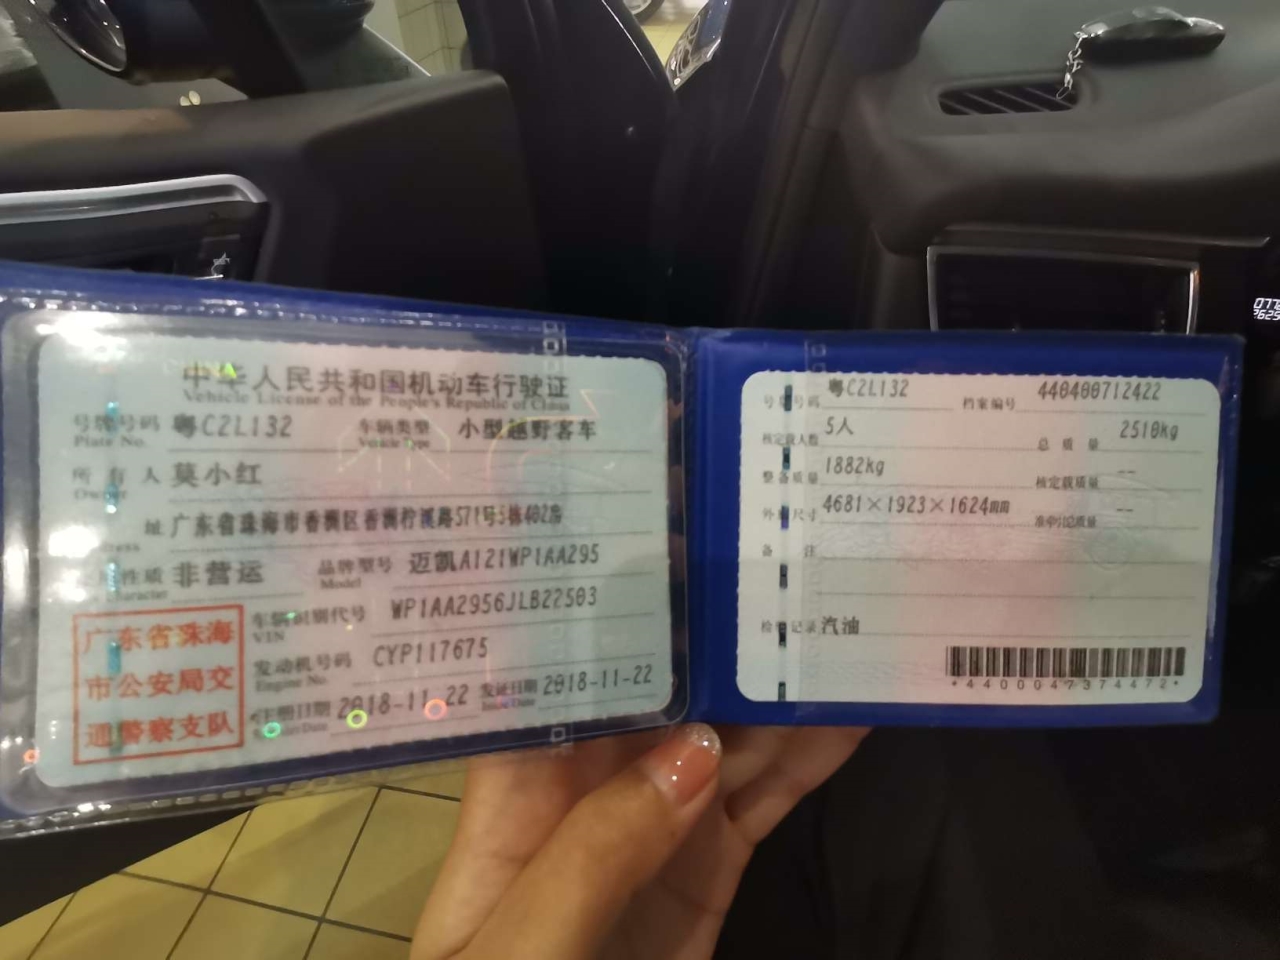 中华人民共和国机动车行驶证
Vehicle License of the People's Republic of China
号牌号码 粤C2L132 车辆类型 小型越野客车
Plate No. Vehicle Type
所有人 莫小红
Owner
址 广东省珠海市香洲区香洲柠溪路571号5栋402房
性质 非营运 品牌型号 迈凯A121WP1AA295
Character Model
车辆识别代号 WP1AA2956JLB22503
VIN
发动机号码 CYP117675
Engine No.
注册日期 2018-11-22 发证日期 2018-11-22
Issue Date
广东省珠海
市公安局交
通警察支队
号牌号码 粤C2L132 档案编号 440400712422
核定载人数 5人 总质量 2510kg
整备质量 1882kg 核定载质量 --
外廓尺寸 4681×1923×1624mm 准牵引总质量 --
备注
检验记录 汽油
*4400047374472*